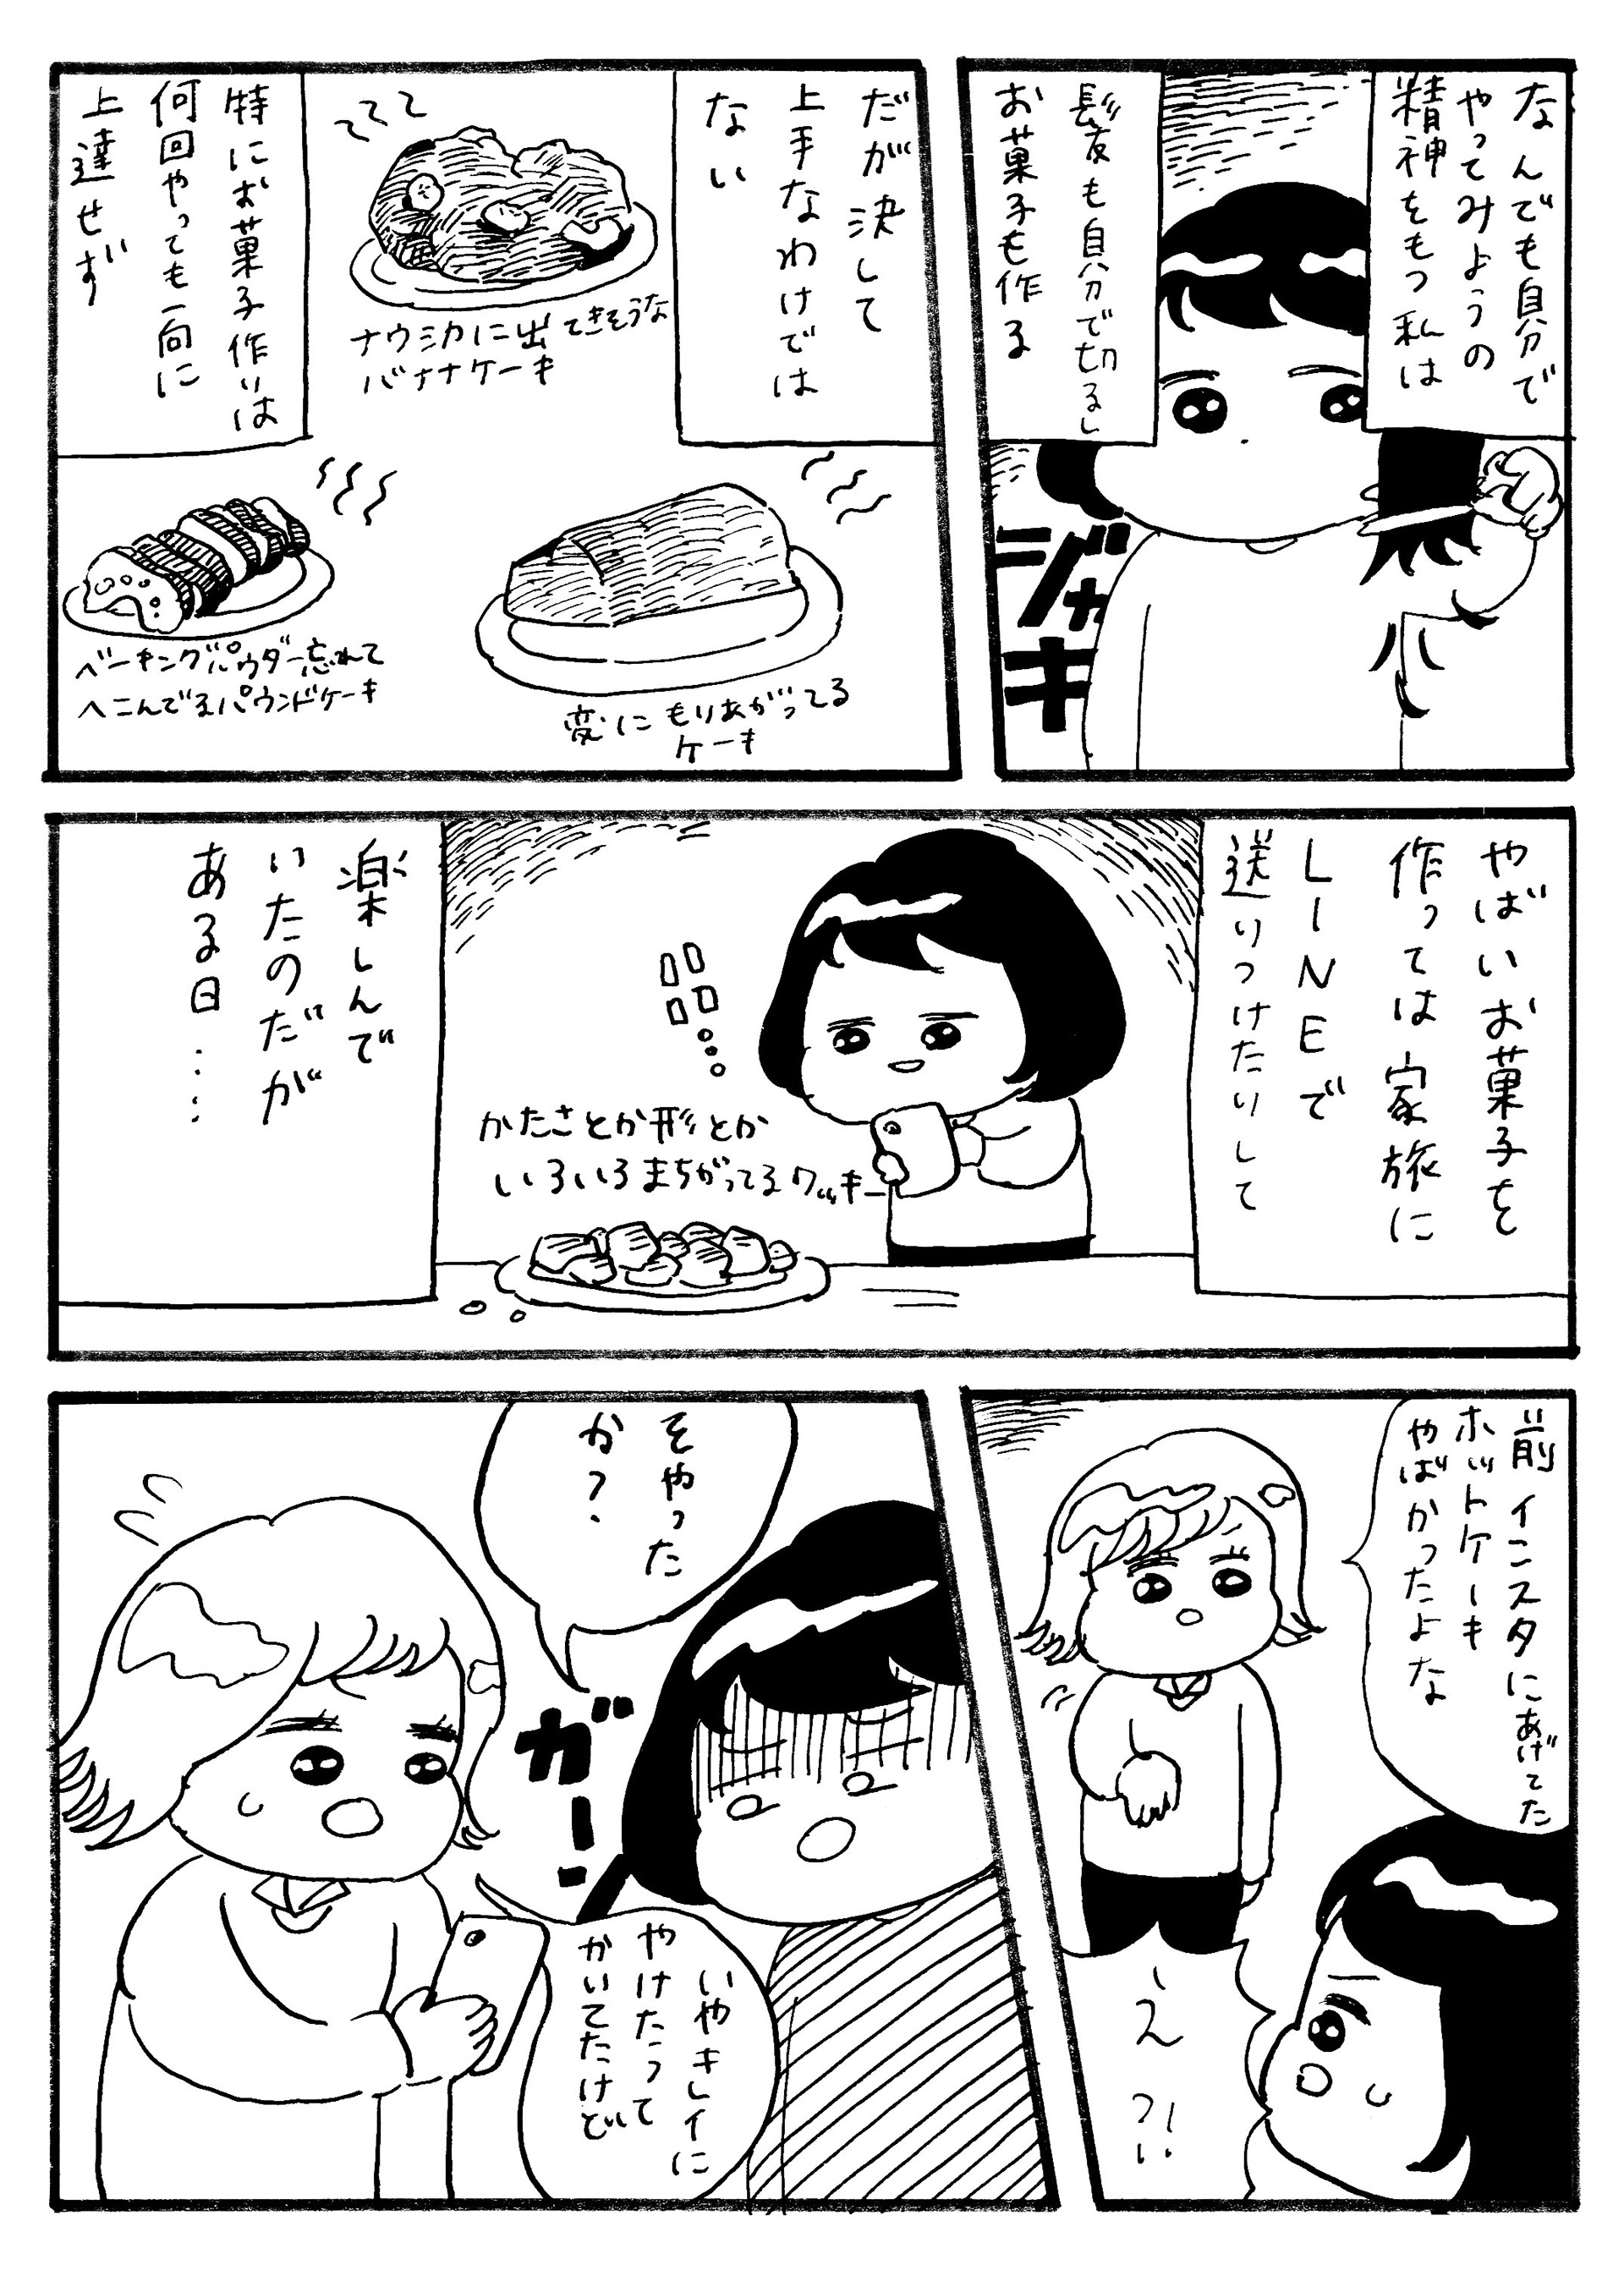 なんでも自分で
やってみようの
精神をもつ私は
髪も自分で切るし
お菓子も作る
ジャキ
だが決して
上手なわけでは
ない
ナウシカに出てきそうな
バナナケーキ
変にもりあがってる
ケーキ
ベーキングパウダー忘れて
へこんでるパウンドケーキ
特にお菓子作りは
何回やっても一向に
上達せず
やばいお菓子を
作っては家族に
LINEで
送りつけたりして
かたさとか形とか
いろいろまちがってるクッキー
楽しんで
いたのだが
ある日……
前インスタにあげてた
ホットケーキ
やばかったよな
え?!
そやった
か?
ガーン
いやキレイに
やけたって
かいてたけど